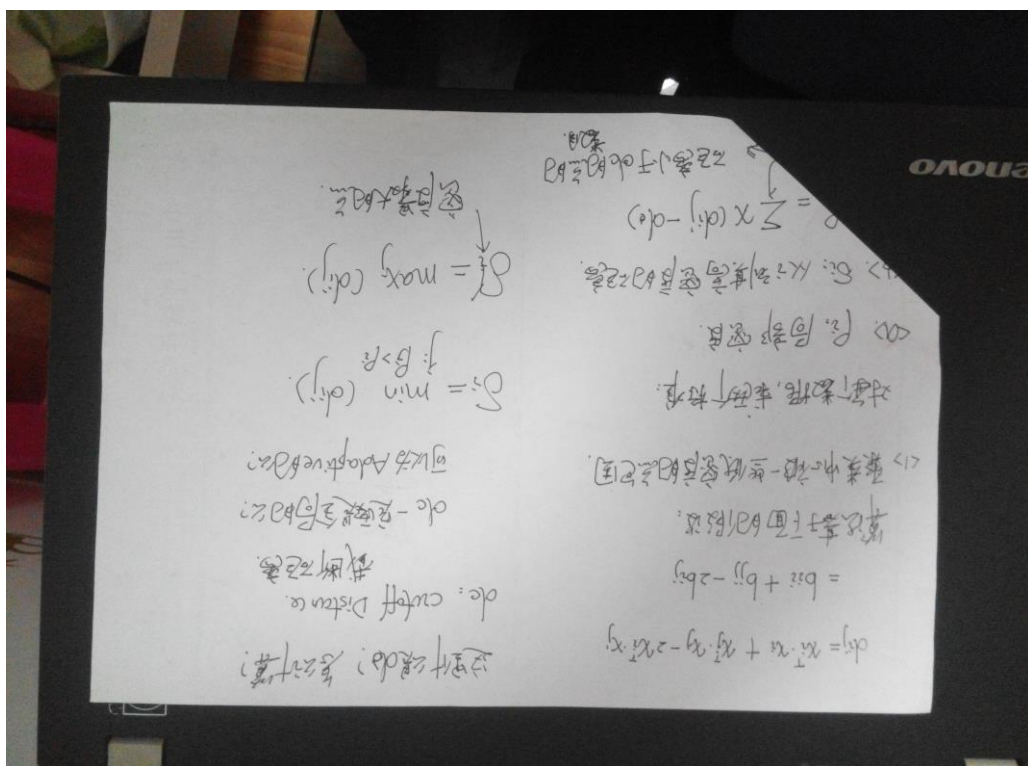 dij = xiᵀ·xi + xjᵀ·xj - 2xiᵀ·xj
= bii + bjj - 2bij
算法基于下面的假设:
<1> 聚类中心被一些低密度的点包围
对每个数据,求两个标准.
<a> ρi: 局部密度
<b> δi: 从i到其高密度的距离
ρ = Σ χ(dij - dc)
距离小于dc的点的
数目.
这里什么是dc? 怎么计算?
dc: cutoff Distance.
截断距离
dc 一定要是全局的么?
可以为Adaptive的么?
δi = min (dij)
j: ρj>ρi
δi = maxj (dij).
密度最大的点
enovo